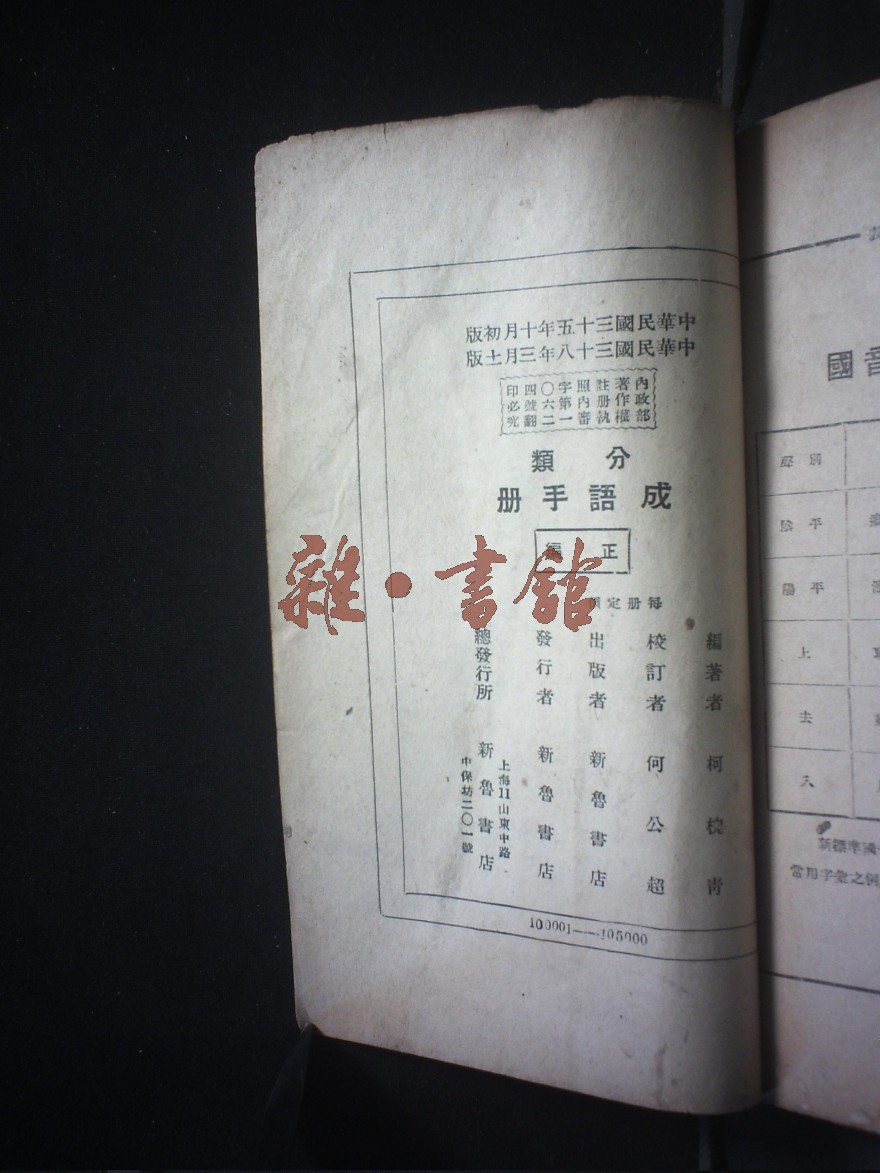 中華民國三十五年十月初版
中華民國三十八年三月土版
內政部
著作權
註册執
照內審
字第一
〇六二
四號翻
印必究
分類
成語手册
正編
每册定價
編著者 柯棪青
校訂者 何公超
出版者 新魯書店
發行者 新魯書店
總發行所 新魯書店
上海11山東中路
中保坊二〇一號
100001——105000
雜·書館
國音
陰平
陽平
上
去
入
新標準國
常用字彙之例